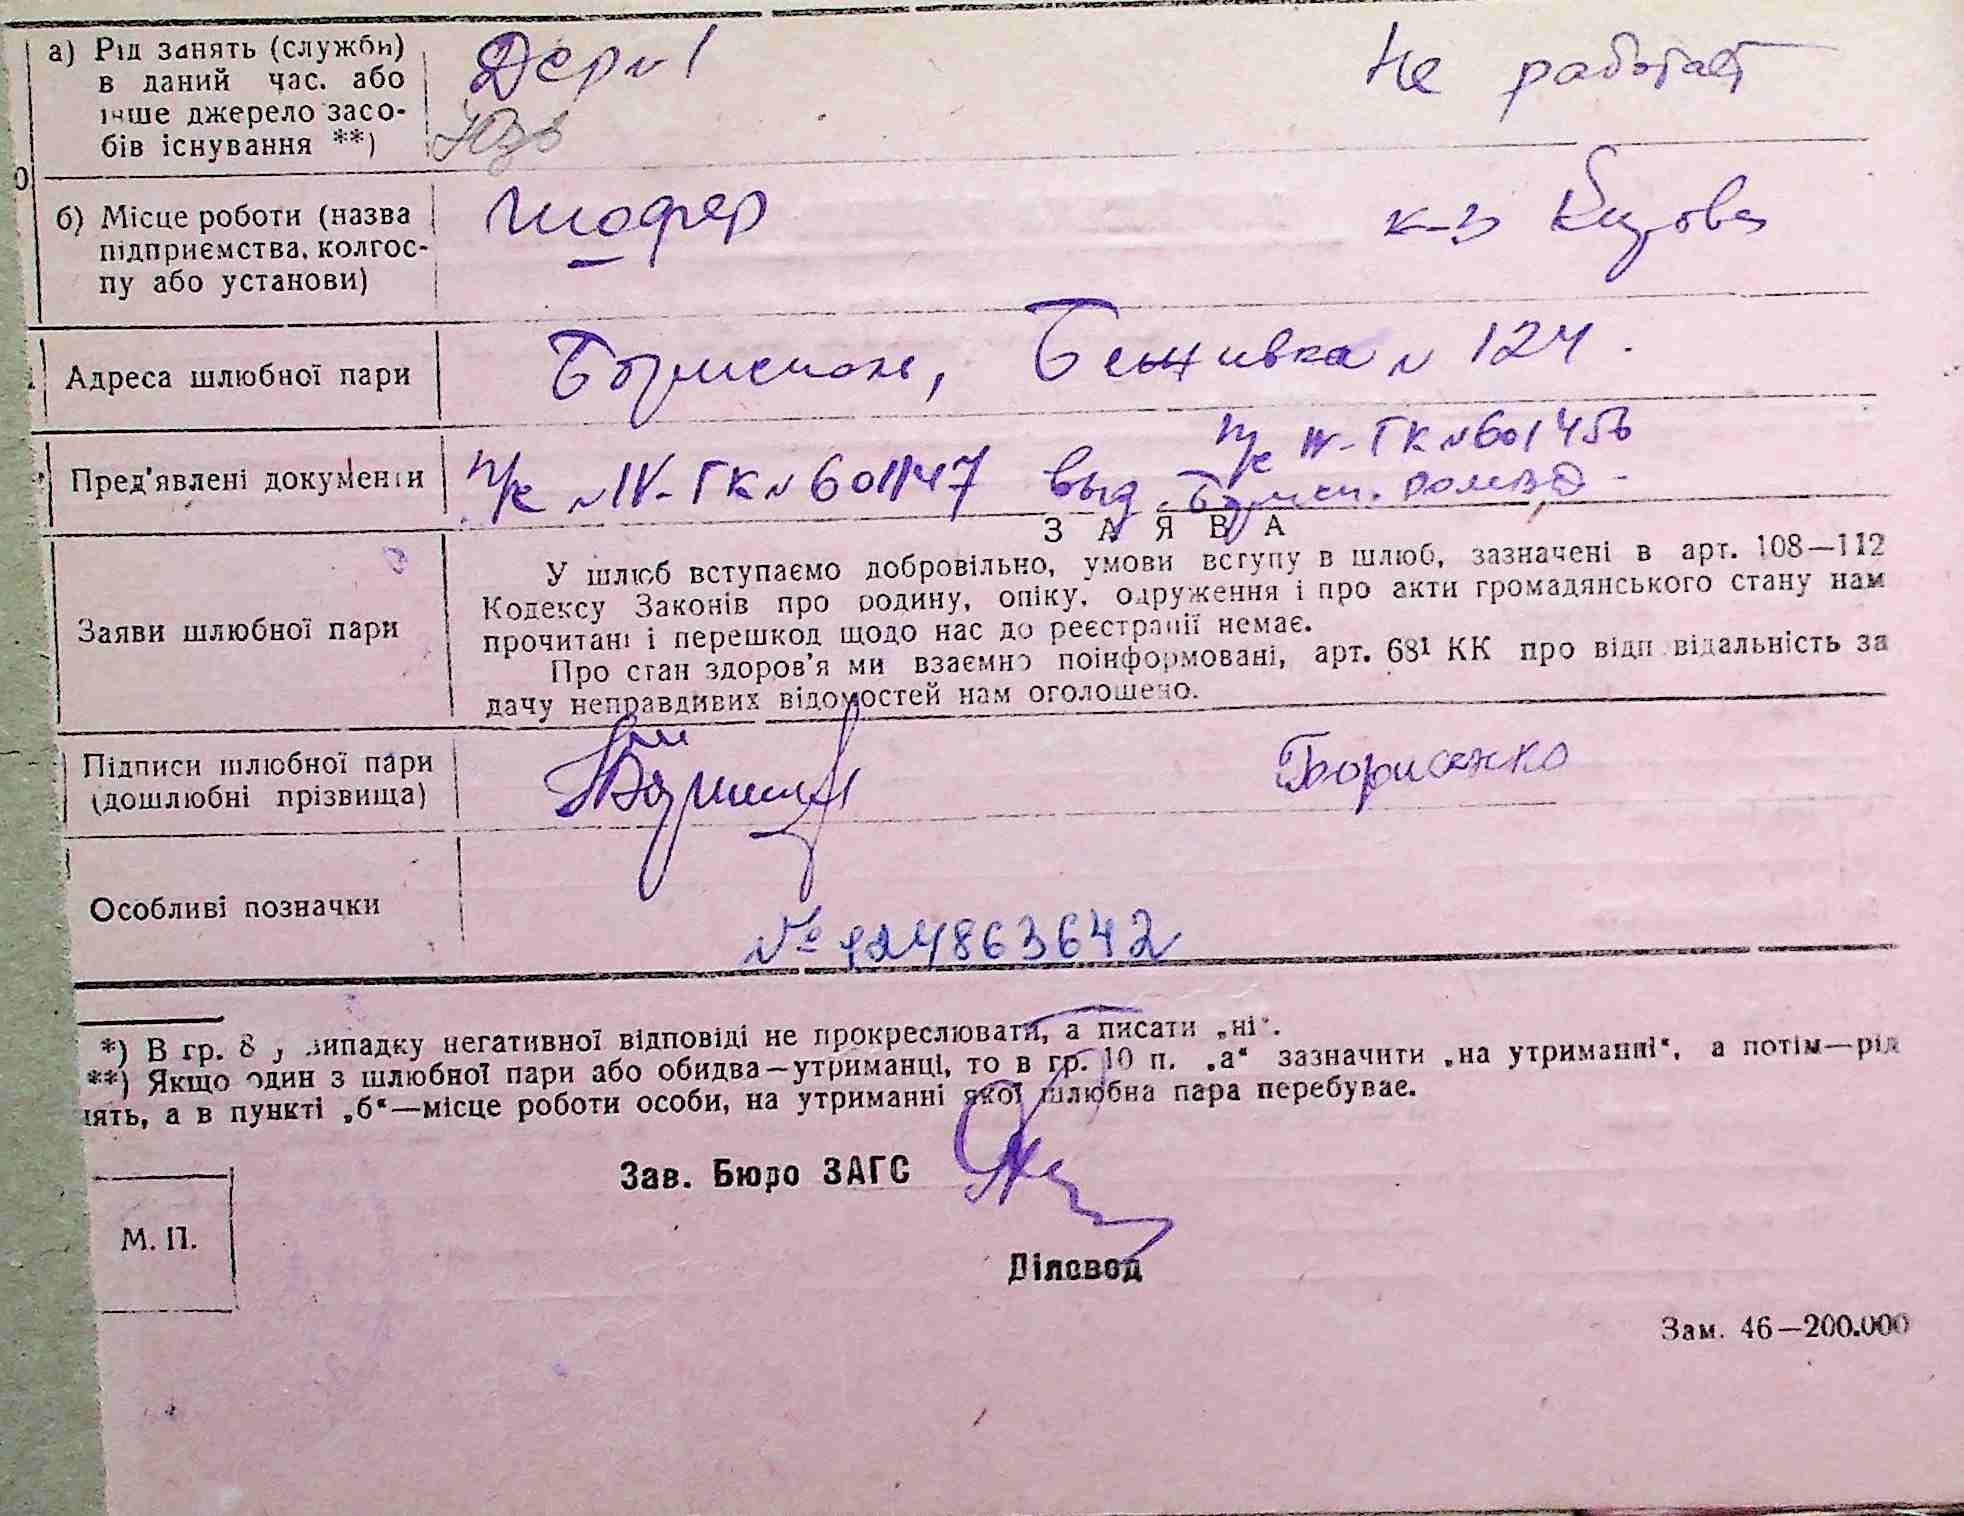 а) Рід занять (служби) в даний час. або інше джерело засобів існування **)
Не работает
б) Місце роботи (назва підприємства, колгоспу або установи)
шофер
к-з
Адреса шлюбної пари
№ 124.
Пред'явлені документи
п/с № IV-ГК № 601147 выд.
п/с IV-ГК № 601456
ЗАЯВА
Заяви шлюбної пари
У шлюб вступаємо добровільно, умови вступу в шлюб, зазначені в арт. 108—112
Кодексу Законів про родину, опіку, одруження і про акти громадянського стану нам
прочитані і перешкод щодо нас до реєстрації немає.
Про стан здоров'я ми взаємно поінформовані, арт. 68¹ КК про відповідальність за
дачу неправдивих відомостей нам оголошено.
Підписи шлюбної пари (дошлюбні прізвища)
Борисенко
Особливі позначки
№ 124863642
*) В гр. 8 у випадку негативної відповіді не прокреслювати, а писати „ні".
**) Якщо один з шлюбної пари або обидва—утриманці, то в гр. 10 п. „а" зазначити „на утриманні", а потім—рід
нять, а в пункті „б"—місце роботи особи, на утриманні якої шлюбна пара перебуває.
Зав. Бюро ЗАГС
М. П.
Діловод
Зам. 46—200.000